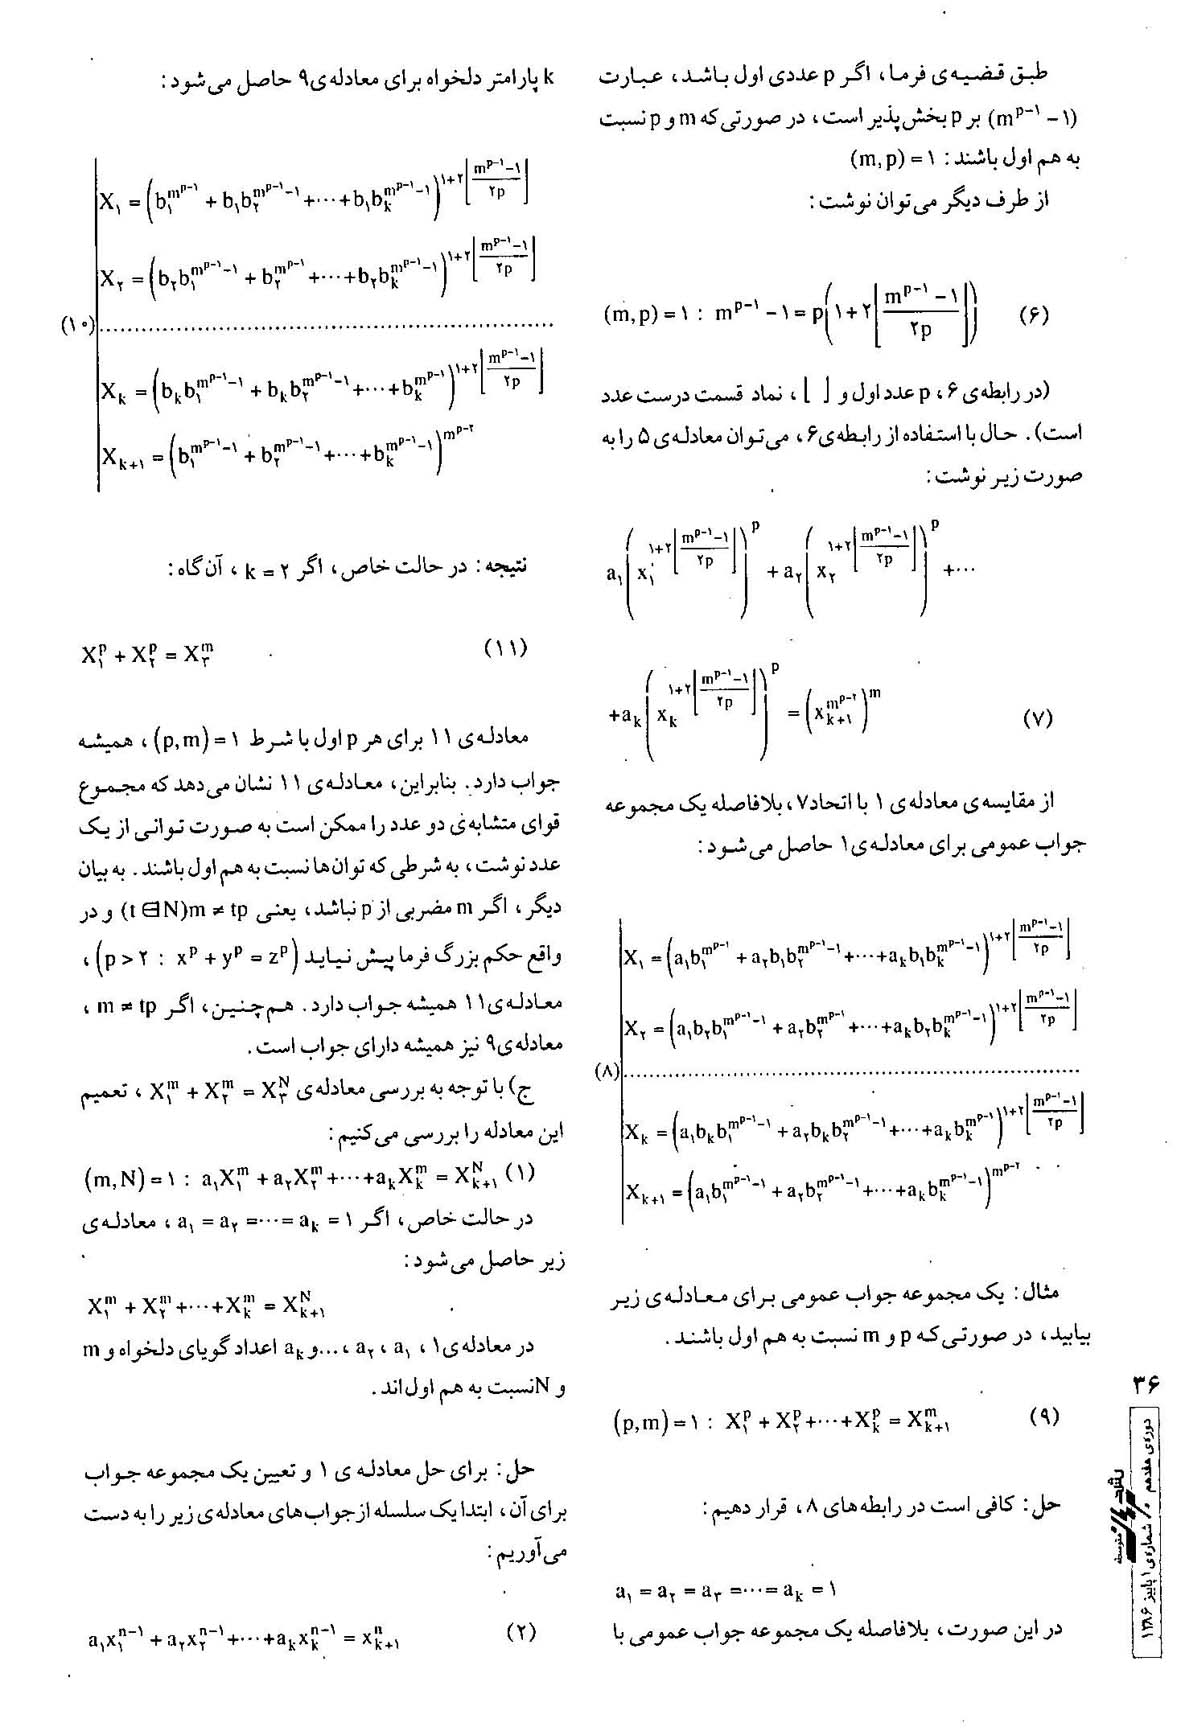 طبق قضیه‌ی فرما، اگر p عددی اول باشد، عبارت
(m^{p-۱} - ۱) بر p بخش‌پذیر است، در صورتی‌که m و p نسبت
به هم اول باشند: (m,p) = ۱
از طرف دیگر می‌توان نوشت:
(m,p) = ۱ : m^{p-۱} - ۱ = p(۱+۲⌊(m^{p-۱} - ۱)/۲p⌋) (۶)
(در رابطه‌ی ۶، p عدد اول و ⌊ ⌋، نماد قسمت درست عدد
است). حال با استفاده از رابطه‌ی ۶، می‌توان معادله‌ی ۵ را به
صورت زیر نوشت:
a_۱(x_۱^{۱+۲⌊(m^{p-۱}-۱)/۲p⌋})^p + a_۲(x_۲^{۱+۲⌊(m^{p-۱}-۱)/۲p⌋})^p + ⋯
+a_k(x_k^{۱+۲⌊(m^{p-۱}-۱)/۲p⌋})^p = (x_{k+۱}^{m^{p-۲}})^m (۷)
از مقایسه‌ی معادله‌ی ۱ با اتحاد ۷، بلافاصله یک مجموعه
جواب عمومی برای معادله‌ی ۱ حاصل می‌شود:
X_۱ = (a_۱b_۱^{m^{p-۱}} + a_۲b_۱b_۲^{m^{p-۱}-۱} + ⋯ + a_kb_۱b_k^{m^{p-۱}-۱})^{۱+۲⌊(m^{p-۱}-۱)/۲p⌋}
X_۲ = (a_۱b_۲b_۱^{m^{p-۱}-۱} + a_۲b_۲^{m^{p-۱}} + ⋯ + a_kb_۲b_k^{m^{p-۱}-۱})^{۱+۲⌊(m^{p-۱}-۱)/۲p⌋}
(۸) ........................................
X_k = (a_۱b_kb_۱^{m^{p-۱}-۱} + a_۲b_kb_۲^{m^{p-۱}-۱} + ⋯ + a_kb_k^{m^{p-۱}})^{۱+۲⌊(m^{p-۱}-۱)/۲p⌋}
X_{k+۱} = (a_۱b_۱^{m^{p-۱}-۱} + a_۲b_۲^{m^{p-۱}-۱} + ⋯ + a_kb_k^{m^{p-۱}-۱})^{m^{p-۲}}
مثال: یک مجموعه جواب عمومی برای معادله‌ی زیر
بیابید، در صورتی‌که p و m نسبت به هم اول باشند.
(p,m) = ۱ : X_۱^p + X_۲^p + ⋯ + X_k^p = X_{k+۱}^m (۹)
حل: کافی است در رابطه‌های ۸، قرار دهیم:
a_۱ = a_۲ = a_۳ = ⋯ = a_k = ۱
در این صورت، بلافاصله یک مجموعه جواب عمومی با
k پارامتر دلخواه برای معادله‌ی ۹ حاصل می‌شود:
X_۱ = (b_۱^{m^{p-۱}} + b_۱b_۲^{m^{p-۱}-۱} + ⋯ + b_۱b_k^{m^{p-۱}-۱})^{۱+۲⌊(m^{p-۱}-۱)/۲p⌋}
X_۲ = (b_۲b_۱^{m^{p-۱}-۱} + b_۲^{m^{p-۱}} + ⋯ + b_۲b_k^{m^{p-۱}-۱})^{۱+۲⌊(m^{p-۱}-۱)/۲p⌋}
(۱۰) ........................................
X_k = (b_kb_۱^{m^{p-۱}-۱} + b_kb_۲^{m^{p-۱}-۱} + ⋯ + b_k^{m^{p-۱}})^{۱+۲⌊(m^{p-۱}-۱)/۲p⌋}
X_{k+۱} = (b_۱^{m^{p-۱}-۱} + b_۲^{m^{p-۱}-۱} + ⋯ + b_k^{m^{p-۱}-۱})^{m^{p-۲}}
نتیجه: در حالت خاص، اگر k = ۲، آن‌گاه:
X_۱^p + X_۲^p = X_۳^m (۱۱)
معادله‌ی ۱۱ برای هر p اول با شرط (p,m) = ۱، همیشه
جواب دارد. بنابراین، معادله‌ی ۱۱ نشان می‌دهد که مجموع
قوای متشابه‌ی دو عدد را ممکن است به صورت توانی از یک
عدد نوشت، به شرطی که توان‌ها نسبت به هم اول باشند. به بیان
دیگر، اگر m مضربی از p نباشد، یعنی m ≠ tp (t∈N) و در
واقع حکم بزرگ فرما پیش نیاید (p > ۲ : x^p + y^p = z^p)،
معادله‌ی ۱۱ همیشه جواب دارد. هم‌چنین، اگر m ≠ tp،
معادله‌ی ۹ نیز همیشه دارای جواب است.
ج) با توجه به بررسی معادله‌ی X_۱^m + X_۲^m = X_۳^N، تعمیم
این معادله را بررسی می‌کنیم:
(m,N) = ۱ : a_۱X_۱^m + a_۲X_۲^m + ⋯ + a_kX_k^m = X_{k+۱}^N (۱)
در حالت خاص، اگر a_۱ = a_۲ = ⋯ = a_k = ۱، معادله‌ی
زیر حاصل می‌شود:
X_۱^m + X_۲^m + ⋯ + X_k^m = X_{k+۱}^N
در معادله‌ی ۱، a_۱، a_۲، ...، و a_k اعداد گویای دلخواه و m
و N نسبت به هم اول‌اند.
حل: برای حل معادله ی ۱ و تعیین یک مجموعه جواب
برای آن، ابتدا یک سلسله از جواب‌های معادله‌ی زیر را به دست
می‌آوریم:
a_۱x_۱^{n-۱} + a_۲x_۲^{n-۱} + ⋯ + a_kx_k^{n-۱} = x_{k+۱}^n (۲)
۳۶
رشد برهان متوسطه
دوره‌ی هفدهم / شماره‌ی ۱ پاییز ۱۳۸۶